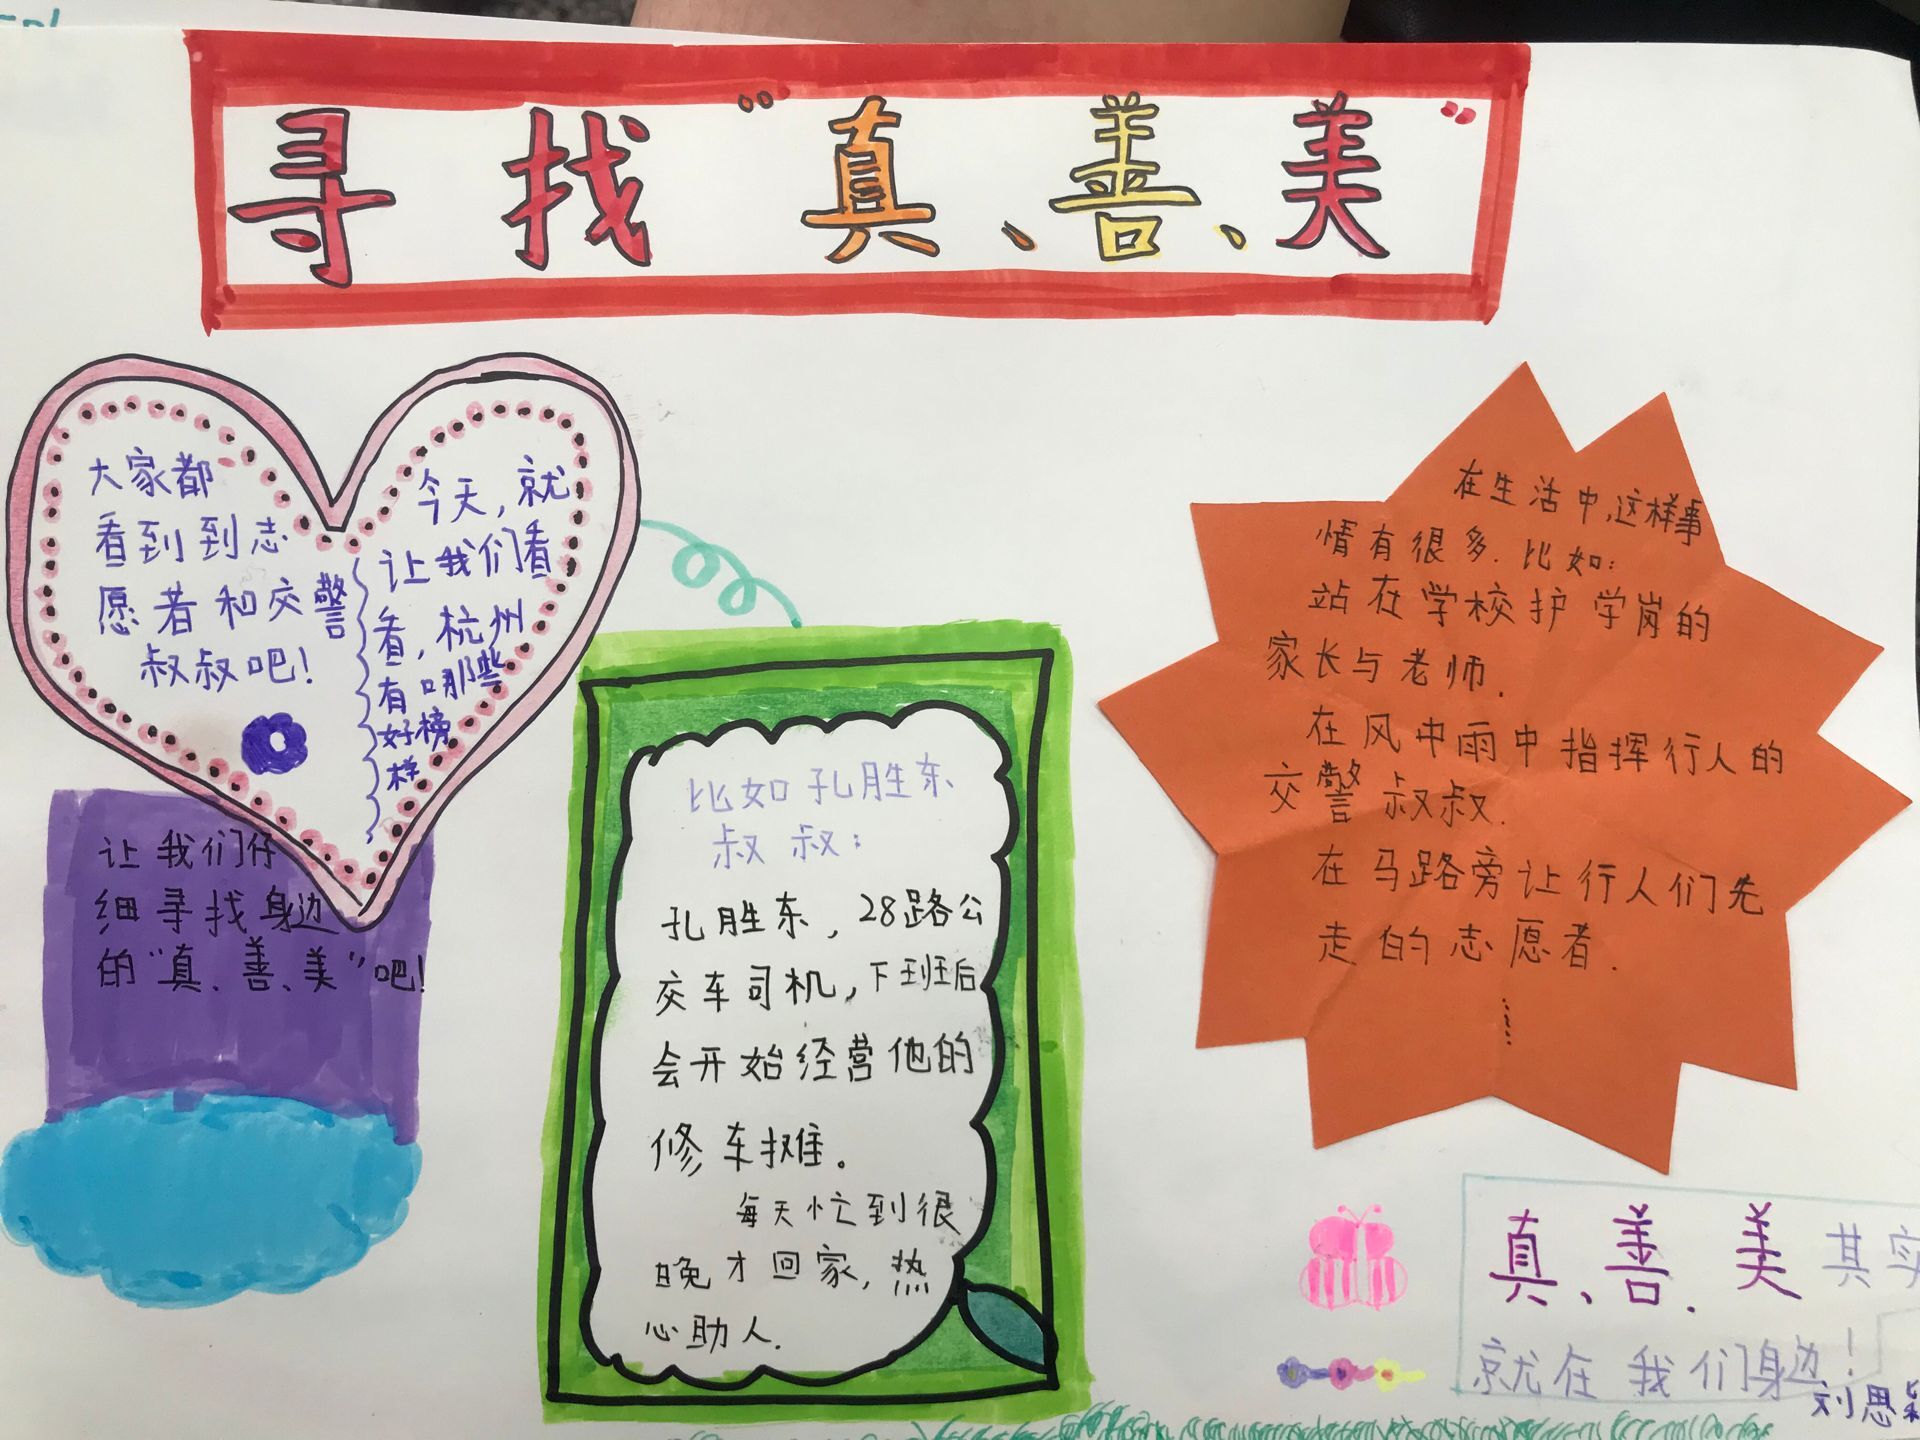 寻找“真、善、美”
大家都
看到到志
愿者和交警
叔叔吧!
今天,就
让我们看
看,杭州
有哪些
好榜
样
让我们仔
细寻找身边
的“真、善、美”吧!
比如孔胜东
叔叔:
孔胜东,28路公
交车司机,下班后
会开始经营他的
修车摊。
每天忙到很
晚才回家,热
心助人.
在生活中,这样事
情有很多.比如:
站在学校护学岗的
家长与老师.
在风中雨中指挥行人的
交警叔叔.
在马路旁让行人们先
走的志愿者.
……
真、善.美其实
就在我们身边!
刘思颖